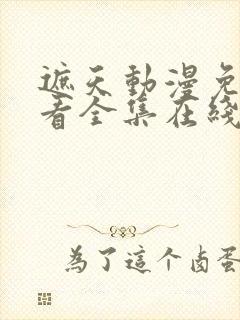 遮天動漫免
看全集在綫
為了這个卤蛋